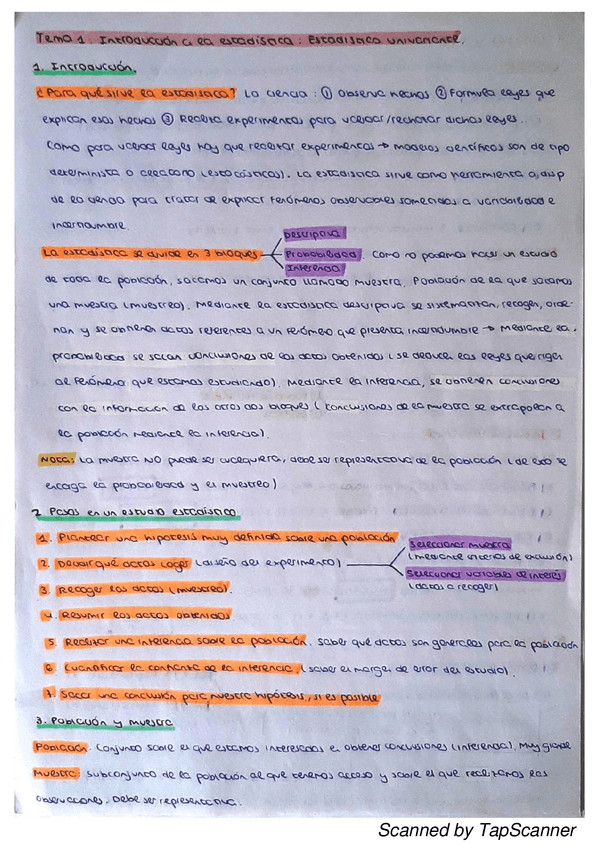 Tema 1: Introducción a la estadística: Estadística univariante.
1. Introducción.
¿Para qué sirve la estadística? La ciencia: ① Observa hechos ② Formula leyes que
explican esos hechos ③ Realiza experimentos para validar/rechazar dichas leyes.
Como para validar leyes hay que realizar experimentos → modelos científicos son de tipo
determinista o aleatorio (estocásticos). La estadística sirve como herramienta a disp
de la ciencia para tratar de explicar fenómenos observables sometidos a variabilidad e
incertidumbre.
Descriptiva
La estadística se divide en 3 bloques Probabilidad. Como no podemos hacer un estudio
Inferencia
de toda la población, sacamos un conjunto llamado muestra. Población de la que sacamos
una muestra (muestreo). Mediante la estadística descriptiva se sistematizan, recogen, orde-
nan y se obtienen datos referentes a un fenómeno que presenta incertidumbre → Mediante la
probabilidad se sacan conclusiones de los datos obtenidos (se deduce las leyes que rigen
al fenómeno que estamos estudiando). Mediante la inferencia, se obtienen conclusiones
con la información de los otros dos bloques (conclusiones de la muestra se extrapolan a
la población mediante la inferencia).
Nota: La muestra NO puede ser cualquiera, debe ser representativa de la población (de eso se
encarga la probabilidad y el muestreo)
2 Pasos en un estudio estadístico
1. Plantear una hipótesis muy definida sobre una población
Seleccionar muestra
(mediante criterios de exclusión)
2. Decidir qué datos coger (diseño del experimento)
Seleccionar variables de interés
3. Recoger los datos (muestreo).
(datos a recoger)
4. Resumir los datos obtenidos
5. Realizar una inferencia sobre la población. Saber qué datos son generales para la población
6. Cuantificar la confianza de la inferencia (saber el margen de error del estudio).
7. Sacar una conclusión para nuestra hipótesis, si es posible
3. Población y muestra
Población. Conjunto sobre el que estamos interesados en obtener conclusiones (inferencia). Muy grande
Muestra: subconjunto de la población al que tenemos acceso y sobre el que realizamos las
observaciones. Debe ser representativa.
Scanned by TapScanner